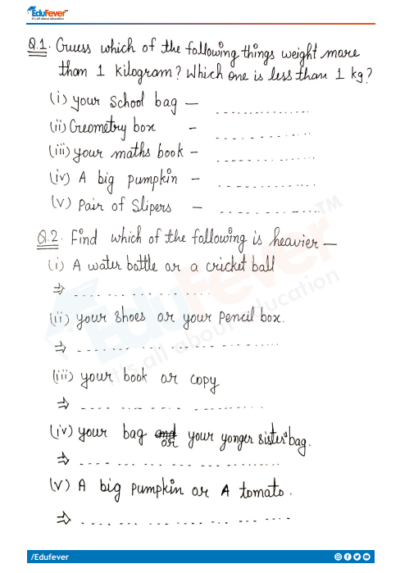 EduFever
It's all about education
Q.1. Guess which of the following things weight more
than 1 kilogram? Which one is less than 1 kg?
(i) your school bag — ..............
(ii) Geometry box — ..............
(iii) your maths book - ..............
(iv) A big pumpkin - ..............
(v) Pair of Slipers - ..............
Q.2. Find which of the following is heavier —
(i) A water bottle or a cricket ball
⇒ ..............
(ii) your shoes or your pencil box.
⇒ ..............
(iii) your book or copy
⇒ ..............
(iv) your bag or your yonger sister's bag.
⇒ ..............
(v) A big pumpkin or A tomato.
⇒ ..............
EduFever™
It's all about education
/Edufever